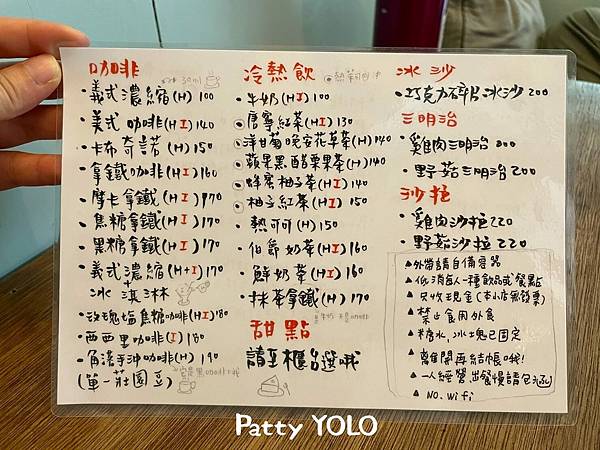 咖啡
・義式濃縮(H) 100
・美式咖啡(HI) 140
・卡布奇諾(H) 150
・拿鐵咖啡(HI) 160
・摩卡拿鐵(HI) 170
・焦糖拿鐵(HI) 170
・黑糖拿鐵(HI) 170
・義式濃縮(H+I) 170
冰淇淋
・玫瑰塩焦糖咖啡(HI) 180
・西西里咖啡(I) 180
・角濾手沖咖啡(H) 190
(單一莊園豆)
冷熱飲
・牛奶(HI) 100
唐寧紅茶(HI) 130
洋甘菊晚安花草茶(H) 140
蘋果黑醋栗果茶(H) 140
蜂蜜柚子茶(HI) 140
柚子紅茶(HI) 150
・熱可可(H) 150
・伯爵奶茶(HI) 160
・鮮奶茶(HI) 160
・抹茶拿鐵(HI) 170
甜點
請至櫃台選哦
冰沙
・巧克力碎片冰沙 200
三明治
・雞肉三明治 200
・野菇三明治 200
沙拉
・雞肉沙拉 220
・野菇沙拉 220
▲外帶請自備容器
▲低消每人一種飲品或餐點
▲只收現金(本小店無發票)
▲禁止食用外食
▲糖水,冰塊已固定
▲離開再結帳哦!
▲一人經營,出餐慢請包涵
▲NO. wifi
Patty YOLO